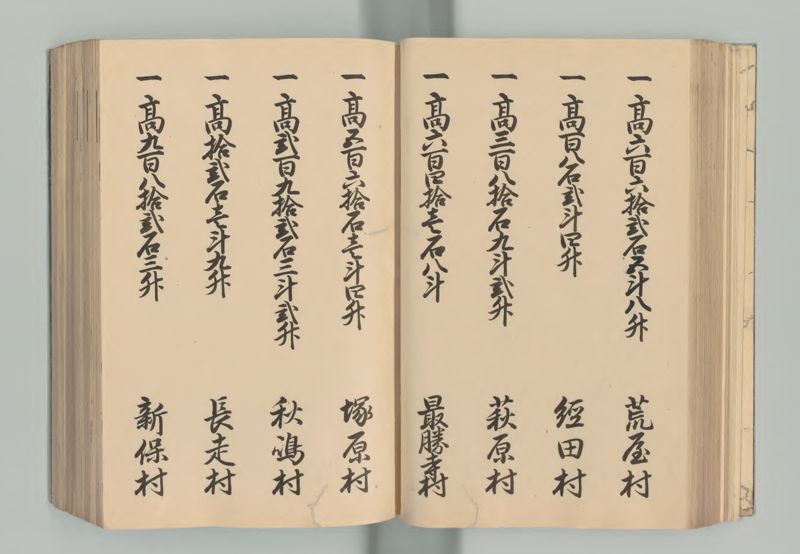 一 高六百六拾弐石五斗八升 荒屋村
一 高百八石弐斗四升 経田村
一 高三百八拾石九斗弐升 萩原村
一 高六百四拾壱石八斗 最勝寺村
一 高五百六拾石壱斗四升 塚原村
一 高弐百九拾弐石三斗弐升 秋嶋村
一 高拾弐石壱斗九升 長走村
一 高九百八拾弐石三升 新保村